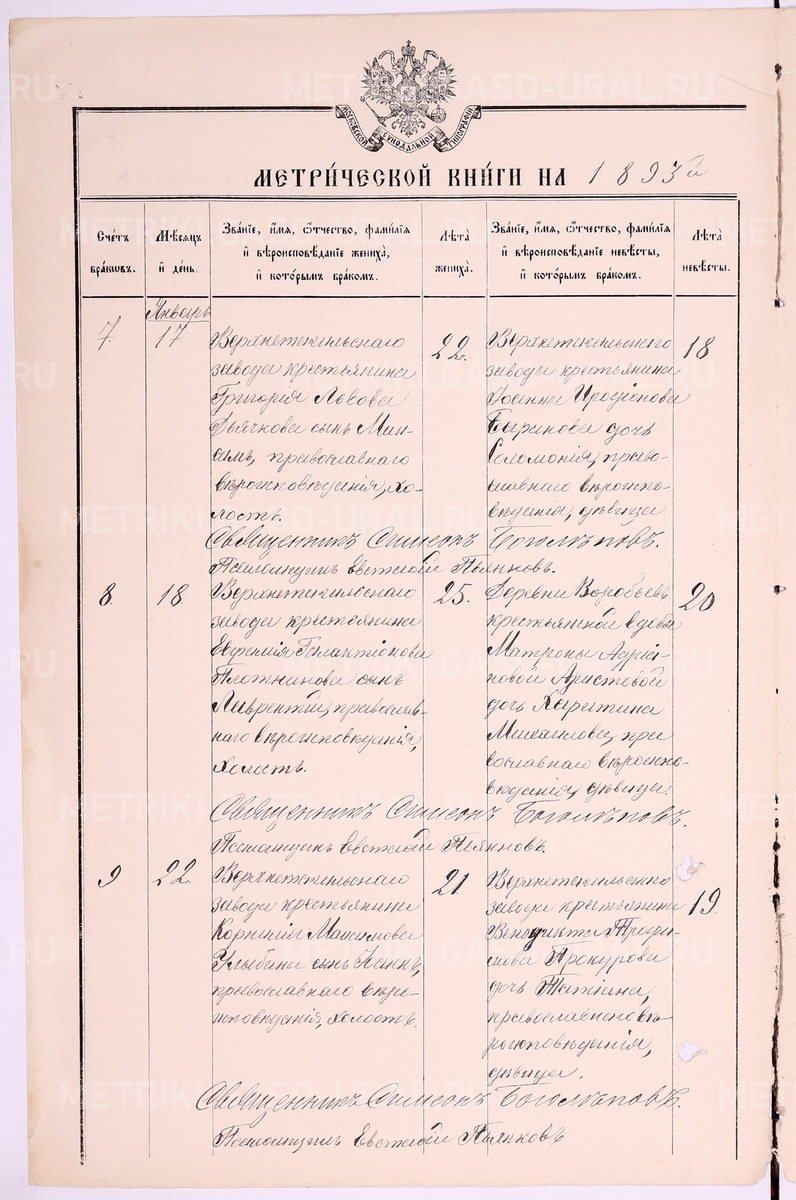 МОСКОВСКОЙ СѴНОДАЛЬНОЙ ТИПОГРАФІИ
МЕТРИ́ЧЕСКОЙ КНИ́ГИ НА 1893й
Сче́тъ бра́ковъ.
Мѣ́сяцъ и҆ де́нь.
Зва́нїе, и҆́мѧ, ѻ҆́тчество, фами́лїѧ
и҆ вѣроисповѣ́данїе жениха̀,
и҆ кото́рымъ бра́комъ.
Лѣ́та жениха̀.
Зва́нїе, и҆́мѧ, ѻ҆́тчество, фами́лїѧ
и҆ вѣроисповѣ́данїе невѣ́сты,
и҆ кото́рымъ бра́комъ.
Лѣ́та невѣ́сты.
Январь
7. 17
Верхнетагильскаго
завода крестьянина
Григорія Львова
Дьячкова сынъ Мак-
симъ, православнаго
вѣроисповѣданія, хо-
лостъ.
22.
Верхнетагильскаго
завода крестьянина
Іоанна Иродіонова
дочь
Соломонія, право-
славнаго вѣроиспо-
вѣданія, дѣвица
18
Священникъ Симеонъ Боголѣповъ.
Псаломщикъ Евстафій Пьянковъ.
8. 18
Верхнетагильскаго
завода крестьянина
Евфимія Галактіонова
Плотникова сынъ
Лаврентій, православ-
наго вѣроисповѣданія,
холостъ.
25.
Деревни Воробьевъ
крестьянской вдовы
Матроны Адріа-
новой Аристовой
дочь Харитина
Михаилова, пра
вославнаго вѣроиспо-
вѣданія, дѣвица
20
Священникъ Симеонъ Боголѣповъ.
Псаломщикъ Евстафій Пьянковъ.
9 22.
Верхнетагильскаго
завода крестьянина
Корнилія Максимова
Улыбина сынъ Іоаннъ,
православнаго вѣро-
исповѣданія, холостъ.
21
Верхнетагильскаго
завода крестьянина
Венедикта
Прокурова
дочь Татіана,
православнаго вѣ-
роисповѣданія,
дѣвица.
19.
Священникъ Симеонъ Боголѣповъ.
Псаломщикъ Евстафій Пьянковъ
METRIKI.GASO-URAL.RU